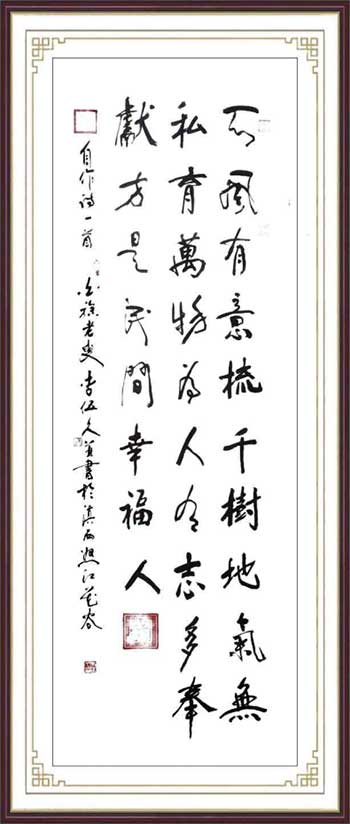 風有意梳千樹地氣無
私育萬物為人有志多奉
獻方是民間幸福人
自作诗一首 老叟李伍久並書於滇西怒江谷